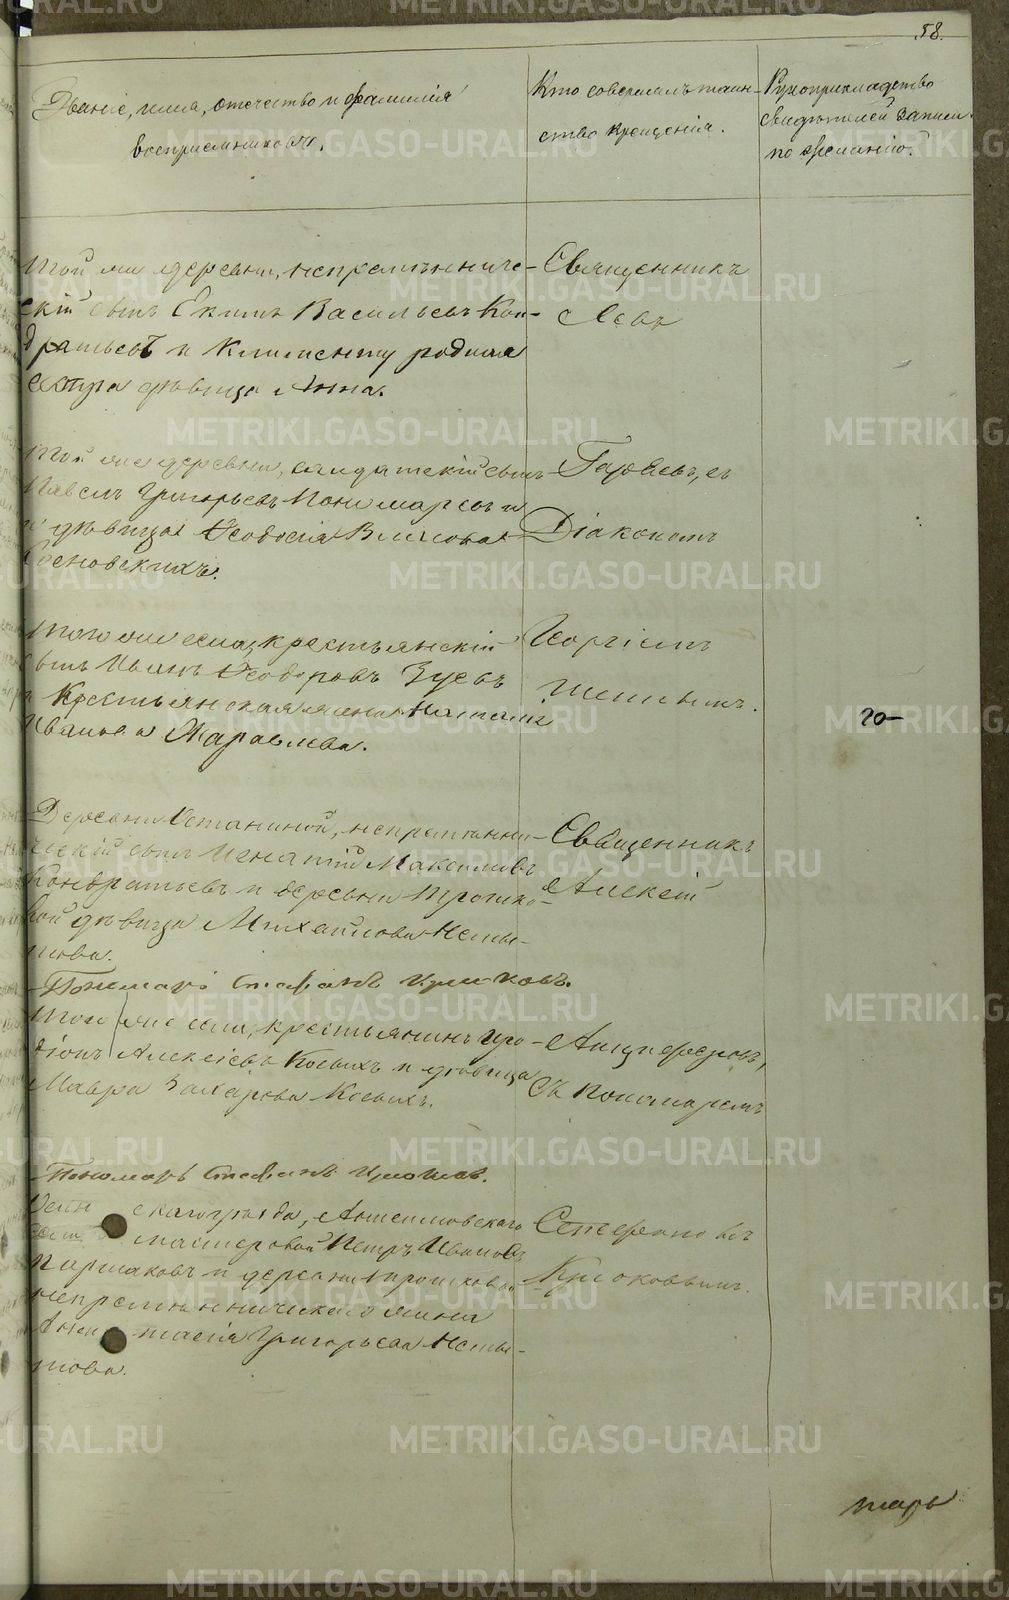 58.
Званіе, имя, отечество и фамилія
воспріемниковъ.
Кто совершалъ таин-
ство крещенія.
Рукоприкладство
свидѣтелей записи
по желанію.
Той же деревни, непремѣнниче-
скій сынъ Екимъ Васильевъ Кон-
дратьевъ и Клименту родная
сестра дѣвица Анна.
Священникъ
Левъ
Той же деревни, солдатскій сынъ
Павелъ Григорьевъ Пономаревъ и
дѣвица Ѳеодосія
Сосновскихъ.
Гаряевъ, съ
Діакономъ
Того же села, крестьянскій
сынъ Иванъ Ѳеодоровъ Зуевъ
и Крестьянская жена Наталія
Иванова Журавлева.
Георгіемъ
20
Деревни Останиной, непремѣнни-
ческій сынъ Игнатій Максимовъ
Кондратьевъ и деревни Трошко-
вой дѣвица Михайлова
Пономарь Стефанъ Крюковъ.
Священникъ
Алексій
Того же села, крестьянинъ Иро-
діонъ Алексіевъ Косыхъ и дѣвица
Мавра Захарова Косыхъ.
Анцыферовъ,
Съ пономаремъ
Пономарь Стефанъ Крюковъ.
скаго града, Алапаевскаго
мастеровой Петръ Ивановъ
Паршаковъ и деревни Трошковой
непремѣнническаго жена
Анас тасія Григорьева
Стефаномъ
Крюковымъ.
тарь
METRIKI.GASO-URAL.RU